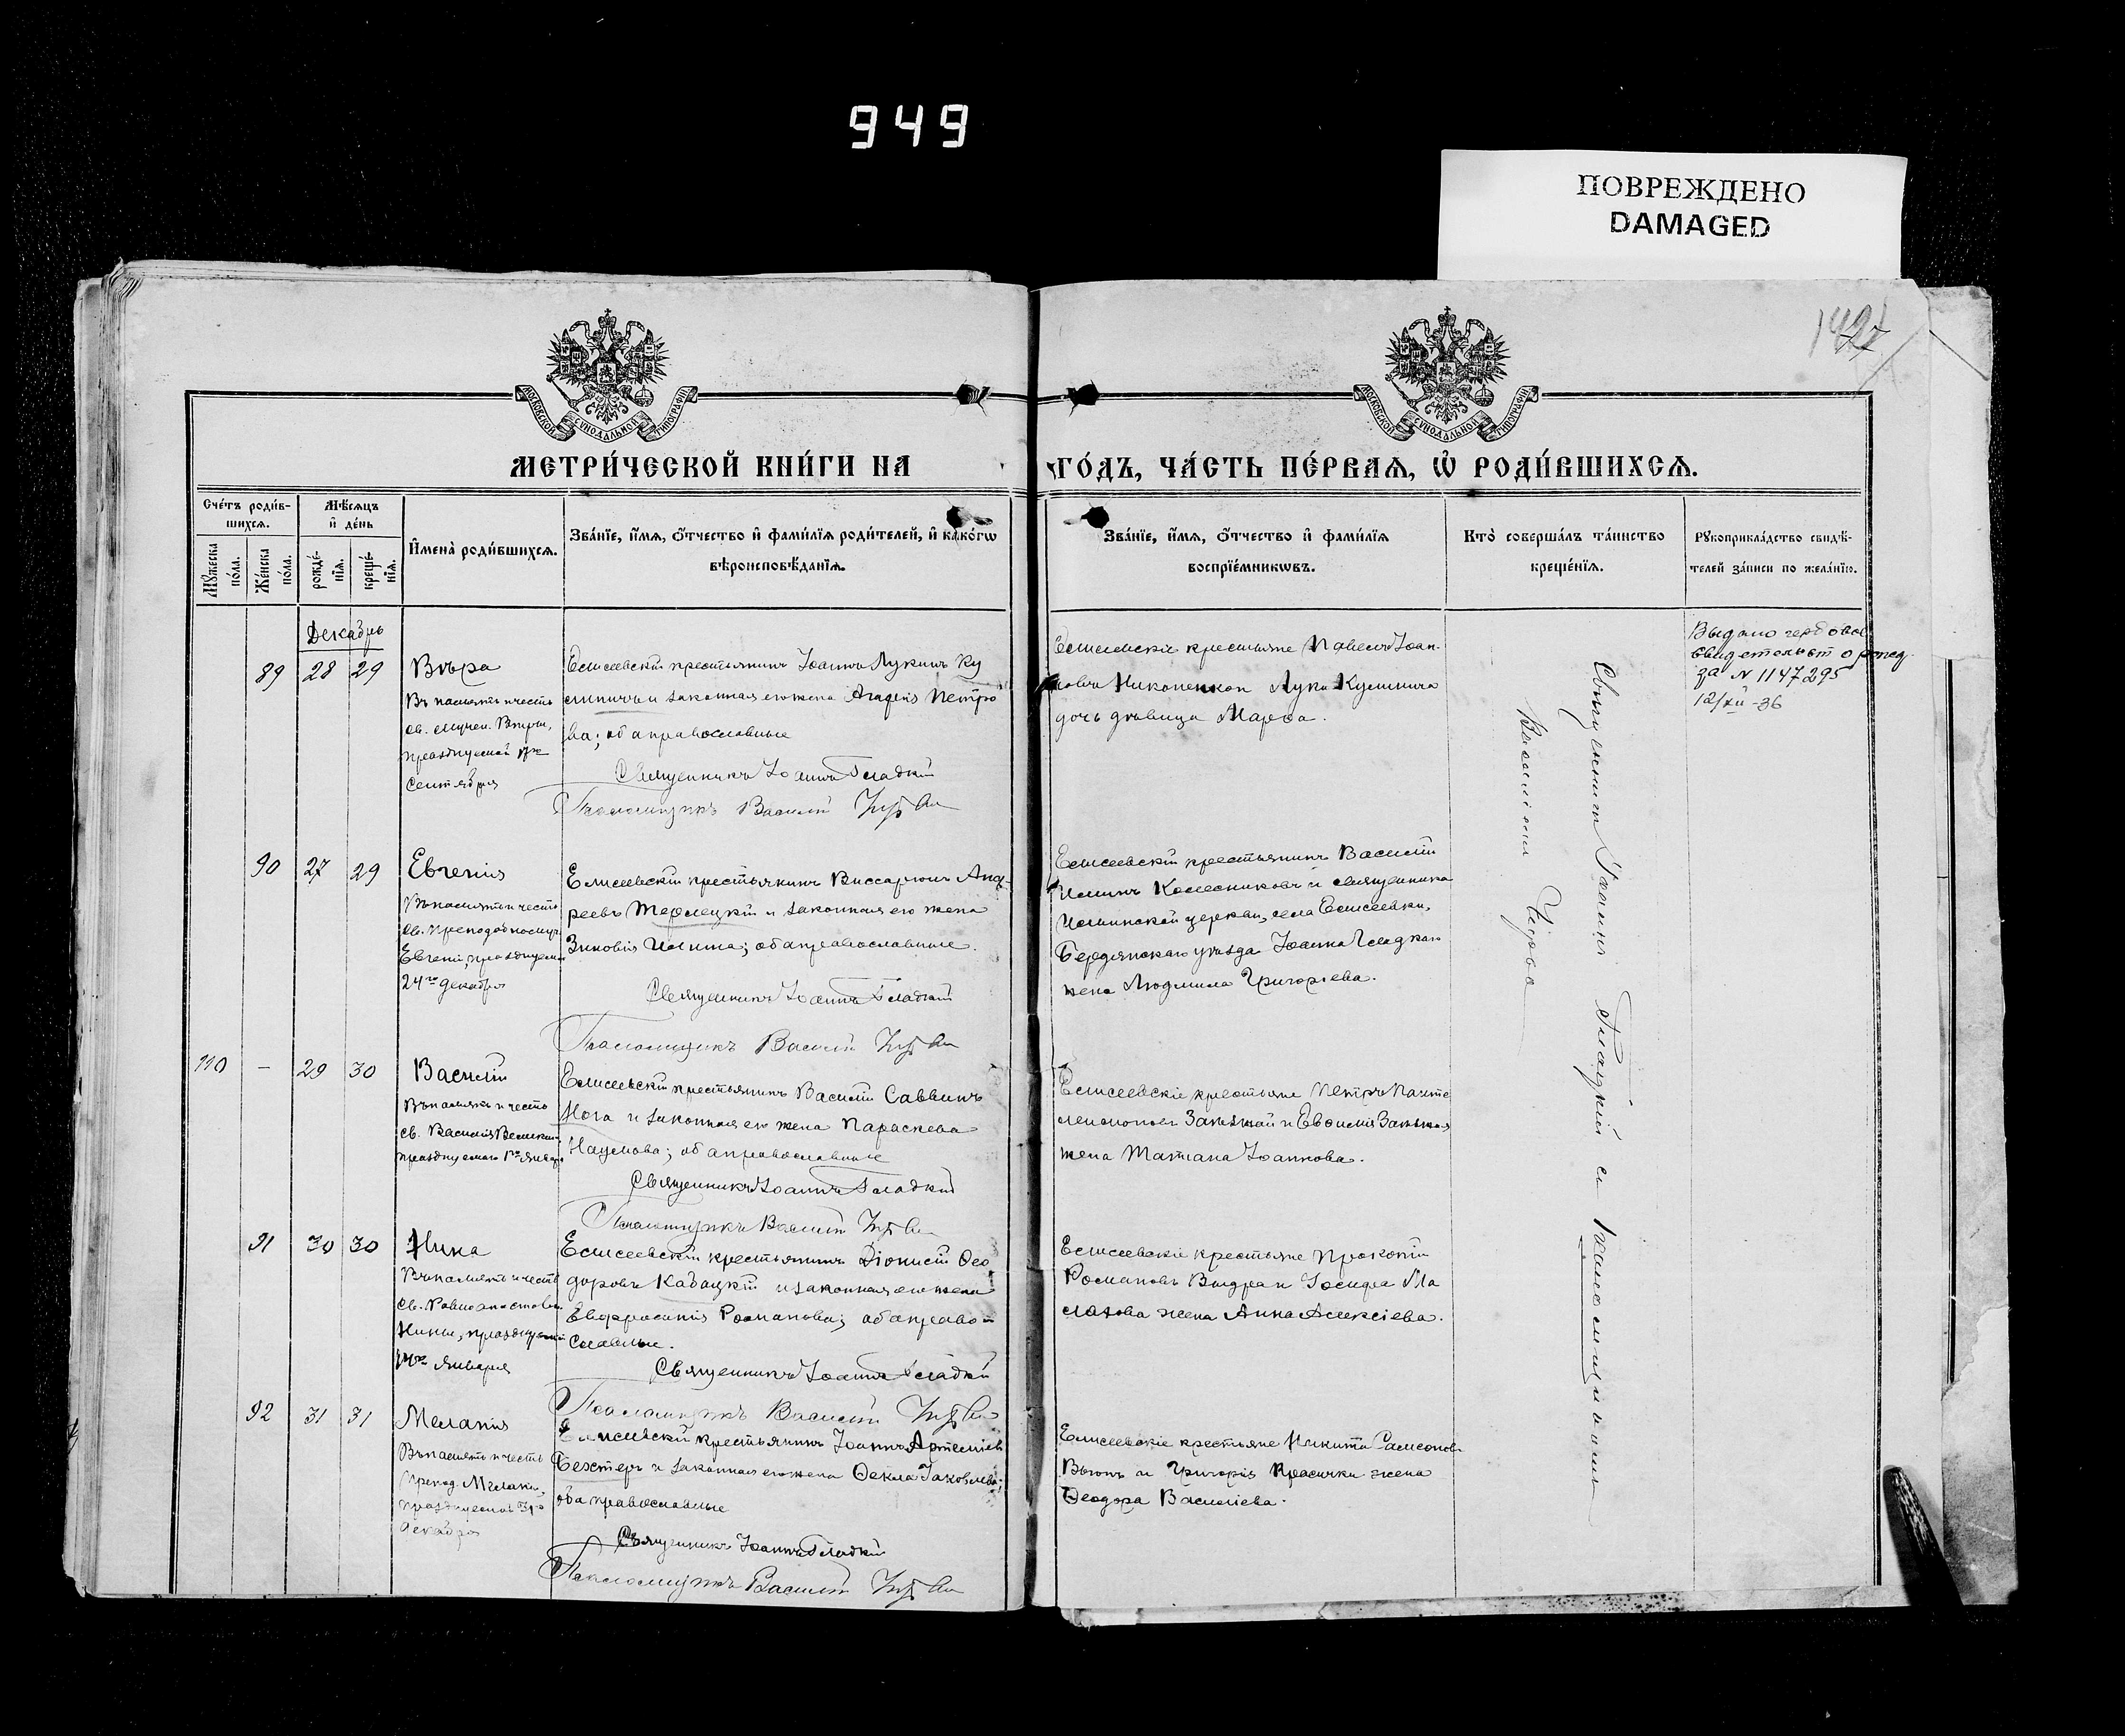 949
ПОВРЕЖДЕНО
DAMAGED
1427
МОСКОВСКОЙ СѴНОДАЛЬНОЙ ТИПОГРАФІИ
МОСКОВСКОЙ СѴНОДАЛЬНОЙ ТИПОГРАФІИ
МЕТРИ́ЧЕСКОЙ КНИ́ГИ НА
ГО́ДЪ, ЧА́СТЬ ПЕ́РВАѦ, Ѡ РОДИ́ВШИХСѦ.
Сче́тъ роди́в-
шихсѧ.
Мꙋжеска по́ла.
Же́нска по́ла.
Мѣ́сѧцъ
и҆ де́нь
рожде́-
нїѧ.
креще́-
нїѧ.
И҆мена̀ роди́вшихсѧ.
Зва́нїе, и҆́мѧ, ѻ҆́тчество и҆ фами́лїѧ роди́телей, и҆ како́гѡ
вѣроисповѣ́данїѧ.
Зва́нїе, и҆́мѧ, ѻ҆́тчество и҆ фами́лїѧ
воспрїе́мникѡвъ.
Кто̀ соверша́лъ та́инство
креще́нїѧ.
Рꙋкоприкла́дство свидѣ́-
телей за́писи по жела́нїю.
Декабрь
89 28 29 Вѣра
Въ память и честь
св. мучен. Вѣры,
празднуемой 17го
Сентября
Елисеевскій крестьянинъ Іоаннъ Лукинъ Ку
и законная его жена Агафія Петро
ва; оба православные
Священникъ Іоаннъ Гладкій
Псаломщикъ Василій
Елисеевскіе крестьяне Павелъ Іоан-
новъ Никопенкои Луки
дочь дѣвица Марѳа.
Выдано гербовое
свидетельст о рожд.
за N 1147295
12/XII-36
90 27 29 Евгенія
Въ память и честь
св. преподобномуч.
Евгеніи, празднуемой
24го декабря
Елисеевскій крестьянинъ Виссаріонъ Анд-
реевъ Терлецкій и законная его жена
Зиновія Ильина; оба православные.
Священникъ Іоаннъ Гладкій
Псаломщикъ Василій
Елисеевскій крестьянинъ Василій
Ильинъ Колесниковъ и священника
Ильинской церкви, села Елисеевки,
Бердянскаго уѣзда Іоанна Гладкаго
жена Людмила Григоріева.
110 - 29 30 Василій
Въ память и честь
св. Василія Великаго
празднуемаго 1го Января
Елисеевскій крестьянинъ Василій Саввинъ
Нога и законная его жена Параскева
Наумова; оба православные
Священникъ Іоаннъ Гладкій
Псаломщикъ Василій
Елисеевскіе крестьяне Петръ Панте
жена Татіана Іоаннова.
91 30 30 Нина
Въ память и честь
св. Равноапостольн.
Нины, празднуемой
14го Января
Елисеевскій крестьянинъ Діонисій Ѳео
доровъ Кабацкій и законная его жена
Евфросинія Романова; оба право
славные.
Священникъ Іоаннъ Гладкій
Псаломщикъ Василій
Елисеевскіе крестьяне Прокопій
Романовъ Выдра и Іосифа Ма
жена Анна Алексіева.
92 31 31 Меланія
Въ память и честь
препод. Меланіи,
празднуемой 31го
декабря
Елисеевскій крестьянинъ Іоаннъ Артеміев
и законная его жена Ѳекла Іаковлева;
оба православные
Священникъ Іоаннъ Гладкій
Псаломщикъ Василій
Елисеевскіе крестьяне Никита Самсонов
Вьюнъ и Григорія жена
Ѳеодора Василіева.
Священникъ Іоаннъ Гладкій съ псаломщикомъ
Василіемъ